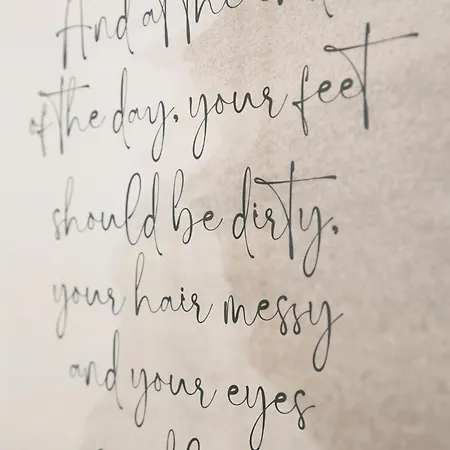 And at the end
of the day, your feet
should be dirty,
your hair messy
and your eyes